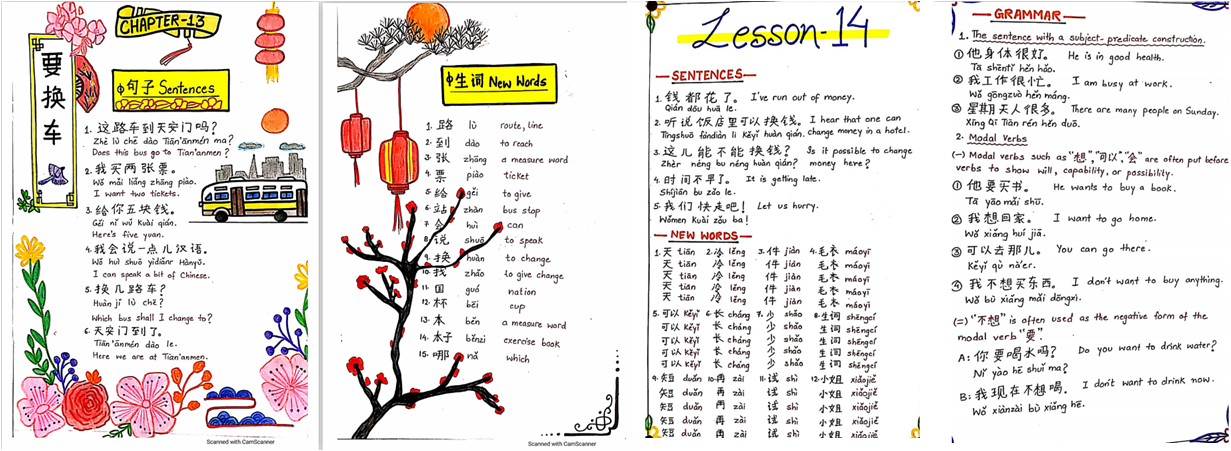 CHAPTER-13
要换车
句子 Sentences
1. 这路车到天安门吗?
Zhè lù chē dào Tiān'ānmén ma?
Does this bus go to Tian'anmen?
2. 我买两张票。
Wǒ mǎi liǎng zhāng piào.
I want two tickets.
3. 给你五块钱。
Gěi nǐ wǔ kuài qián.
Here's five yuan.
4. 我会说一点儿汉语。
Wǒ huì shuō yìdiǎnr Hànyǔ.
I can speak a bit of Chinese.
5. 换几路车?
Huàn jǐ lù chē?
Which bus shall I change to?
6. 天安门到了。
Tiān'ānmén dào le.
Here we are at Tian'anmen.
Scanned with CamScanner
生词 New Words
1. 路 lù route, line
2. 到 dào to reach
3. 张 zhāng a measure word
4. 票 piào ticket
5. 给 gěi to give
6. 站 zhàn bus stop
7. 会 huì can
8. 说 shuō to speak
9. 换 huàn to change
10. 找 zhǎo to give change
11. 国 guó nation
12. 杯 bēi cup
13. 本 běn a measure word
14. 本子 běnzi exercise book
15. 哪 nǎ which
Scanned with CamScanner
Lesson-14
SENTENCES
1. 钱都花了。 I've run out of money.
Qián dōu huā le.
2. 听说饭店里可以换钱。 I hear that one can
Tīngshuō fàndiàn li kěyǐ huàn qián. change money in a hotel.
3. 这儿能不能换钱? Is it possible to change
Zhèr néng bu néng huàn qián? money here?
4. 时间不早了。 It is getting late.
Shíjiān bu zǎo le.
5. 我们快走吧! Let us hurry.
Wǒmen Kuài zǒu ba!
NEW WORDS
1. 天 tiān 2. 冷 lěng 3. 件 jiàn 4. 毛衣 máoyī
天 tiān 冷 lěng 件 jiàn 毛衣 máoyī
天 tiān 冷 lěng 件 jiàn 毛衣 máoyī
天 tiān 冷 lěng 件 jiàn 毛衣 máoyī
5. 可以 Kěyǐ 6. 长 cháng 7. 少 shǎo 8. 生词 shēngcí
可以 Kěyǐ 长 cháng 少 shǎo 生词 shēngcí
可以 Kěyǐ 长 cháng 少 shǎo 生词 shēngcí
可以 Kěyǐ 长 cháng 少 shǎo 生词 shēngcí
可以 Kěyǐ 长 cháng 少 shǎo 生词 shēngcí
9. 短 duǎn 10. 再 zài 11. 试 shì 12. 小姐 xiǎojiě
短 duǎn 再 zài 试 shì 小姐 xiǎojiě
短 duǎn 再 zài 试 shì 小姐 xiǎojiě
短 duǎn 再 zài 试 shì 小姐 xiǎojiě
短 duǎn 再 zài 试 shì 小姐 xiǎojiě
GRAMMAR
1. The sentence with a subject-predicate construction.
① 他身体很好。 He is in good health.
Tā shēntǐ hěn hǎo.
② 我工作很忙。 I am busy at work.
Wǒ gōngzuò hěn máng.
③ 星期天人很多。 There are many people on Sunday.
Xīng Qī Tiān rén hěn duō.
2. Modal Verbs
(一) Modal verbs such as "想", "可以", "会" are often put before
verbs to show will, capability, or possibility.
① 他要买书。 He wants to buy a book.
Tā yāo mǎi shū.
② 我想回家。 I want to go home.
Wǒ xiǎng huí jiā.
③ 可以去那儿。 You can go there.
Kěyǐ qù nà'er.
④ 我不想买东西。 I don't want to buy anything.
Wǒ bù xiǎng mǎi dōngxi.
(二) "不想" is often used as the negative form of the
modal verb "要".
A: 你要喝水吗? Do you want to drink water?
Nǐ yào hē shuǐ ma?
B: 我现在不想喝。 I don't want to drink now.
Wǒ xiànzài bù xiǎng hē.